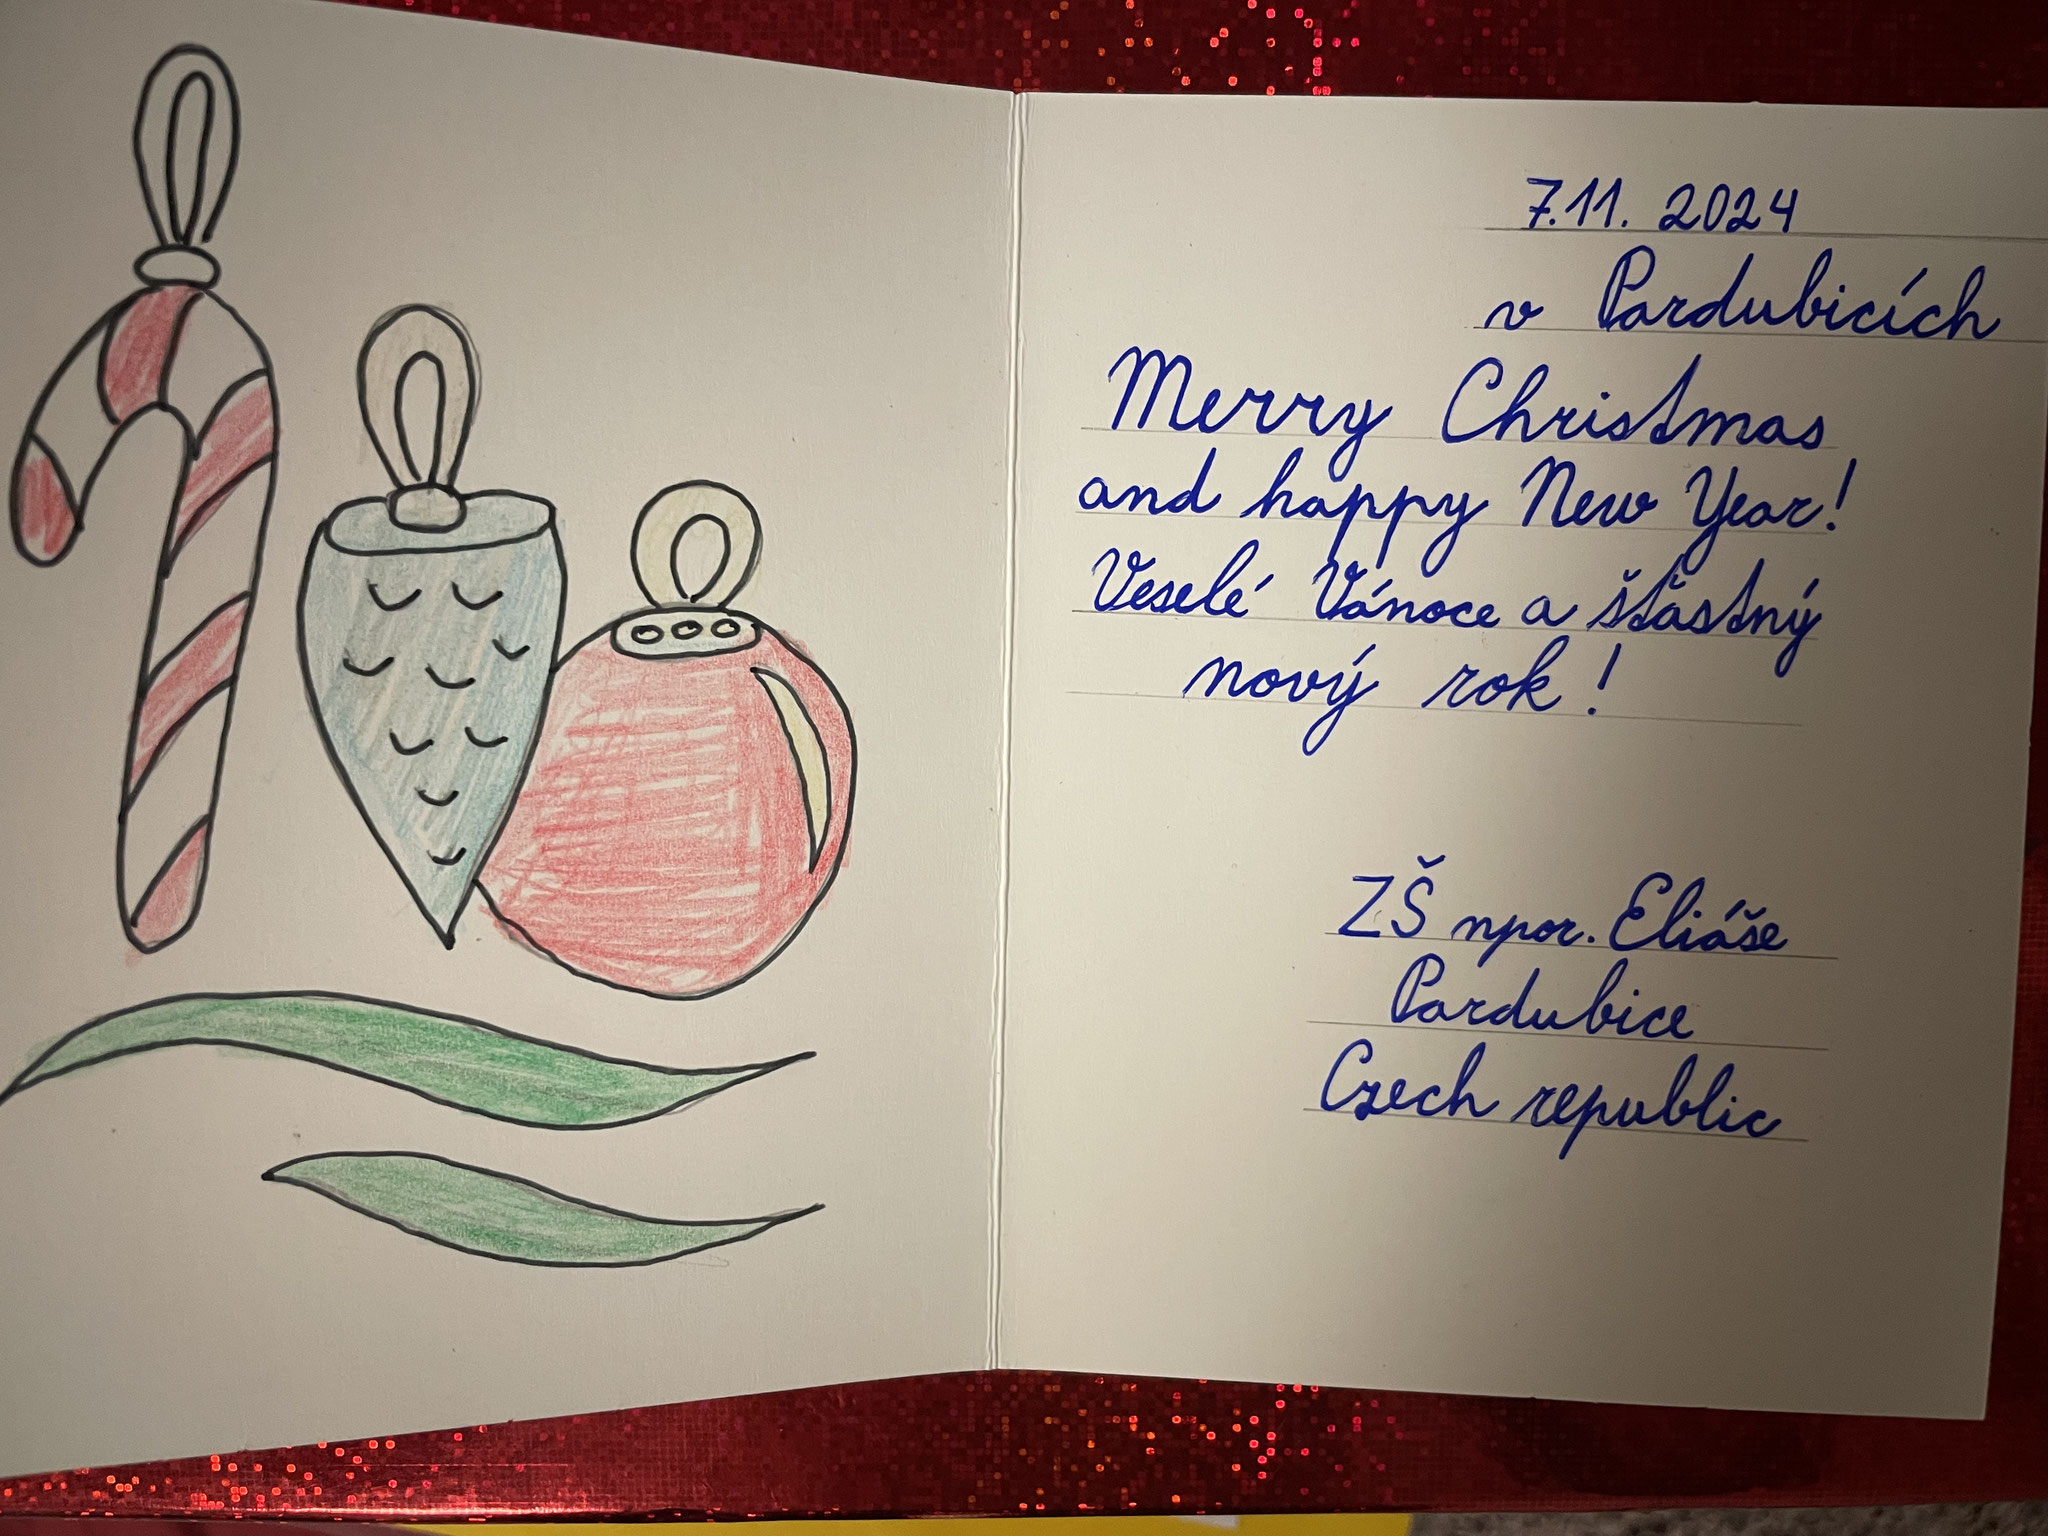 7.11. 2024
v Pardubicích
Merry Christmas
and happy New Year!
Veselé Vánoce a šťastný
nový rok!
ZŠ npor. Eliáše
Pardubice
Czech republic